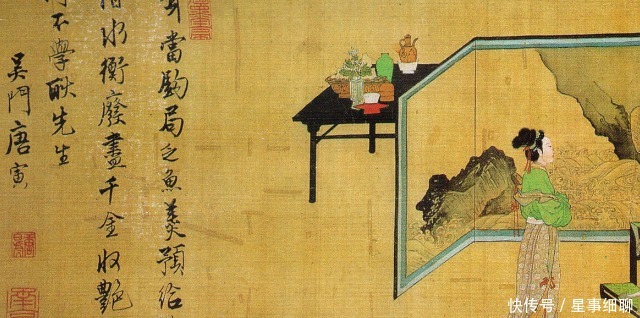 當局乏魚羹預給
水衡廢盡千金收艷
不學耿先生
吳門唐寅
快传号／星事细聊